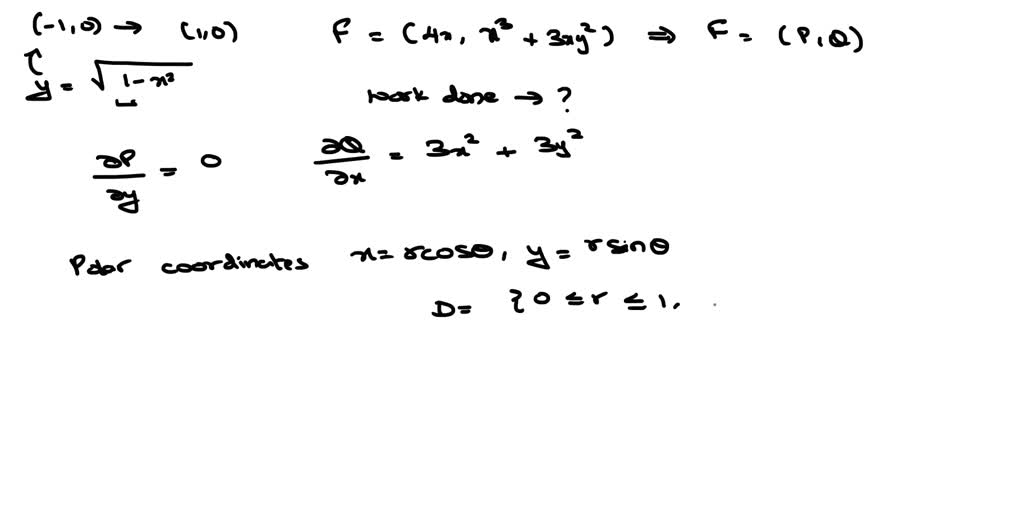 (-1,0) → (1,0) F = (4x, x³ + 3xy²) ⇒ F = (P, Q)
y = √(1-x²)
work done → ?
∂P/∂y = 0 ∂Q/∂x = 3x² + 3y²
Polar coordinates x = rcosθ, y = rsinθ
D = {0 ≤ r ≤ 1,